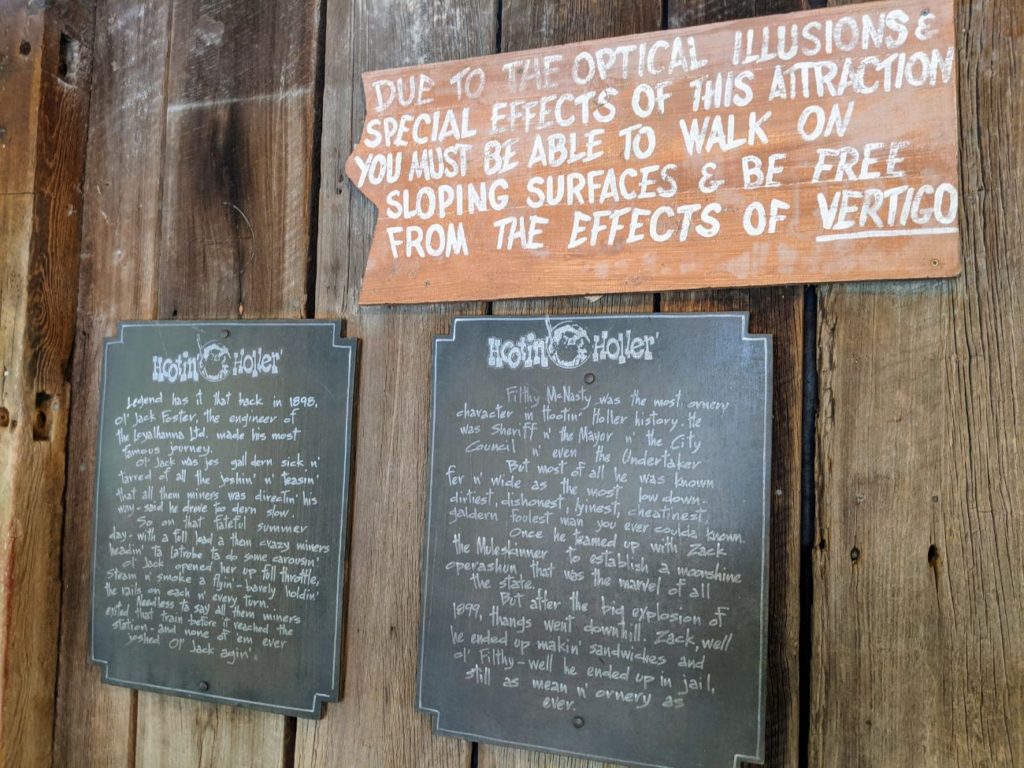 DUE TO THE OPTICAL ILLUSIONS &
SPECIAL EFFECTS OF THIS ATTRACTION
YOU MUST BE ABLE TO WALK ON
SLOPING SURFACES & BE FREE
FROM THE EFFECTS OF VERTIGO
Hootin Holler'
Legend has it that back in 1898,
Ol' Jack Foster, the engineer of
the Loyalhanna Ltd. made his most
famous journey.
Ol' Jack was jes gall dern sick n'
tarred of all the joshin' n' teasin'
that all them miners was directin' his
way - said he drove too dern slow.
So on that fateful summer
day - with a full load a them crazy miners
headin' ta Latrobe ta do some carousin'
Ol' Jack opened her up full throttle,
steam n' smoke a flyin' - barely holdin'
the rails on each n' every turn.
Needless to say all them miners
exited that train before it reached the
station - and none of 'em ever
joshed Ol' Jack agin'.
Hootin Holler'
Filthy McNasty was the most ornery
character n' Hootin' Holler history. He
was Sheriff n' the Mayor n' the City
Council n' even the Undertaker
But most of all he was known
fer n' wide as the most low down,
dirtiest, dishonest, lyinest, cheatinest,
galdern foulest man you ever coulda known.
Once he teamed up with Zack
the Muleskinner to establish a moonshine
operashun that was the marvel of all
the state.
But after the big explosion of
1899, thangs went downhill. Zack, well
he ended up makin' sandwiches and
ol' Filthy - well he ended up in jail,
still as mean n' ornery as
ever.